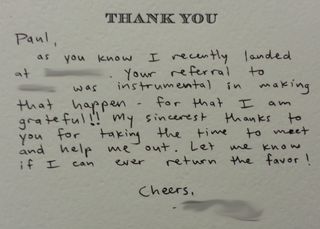 THANK YOU
Paul,
as you know I recently landed
at . Your referral to
was instrumental in making
that happen - for that I am
grateful!! My sincerest thanks to
you for taking the time to meet
and help me out. Let me know
if I can ever return the favor!
Cheers,